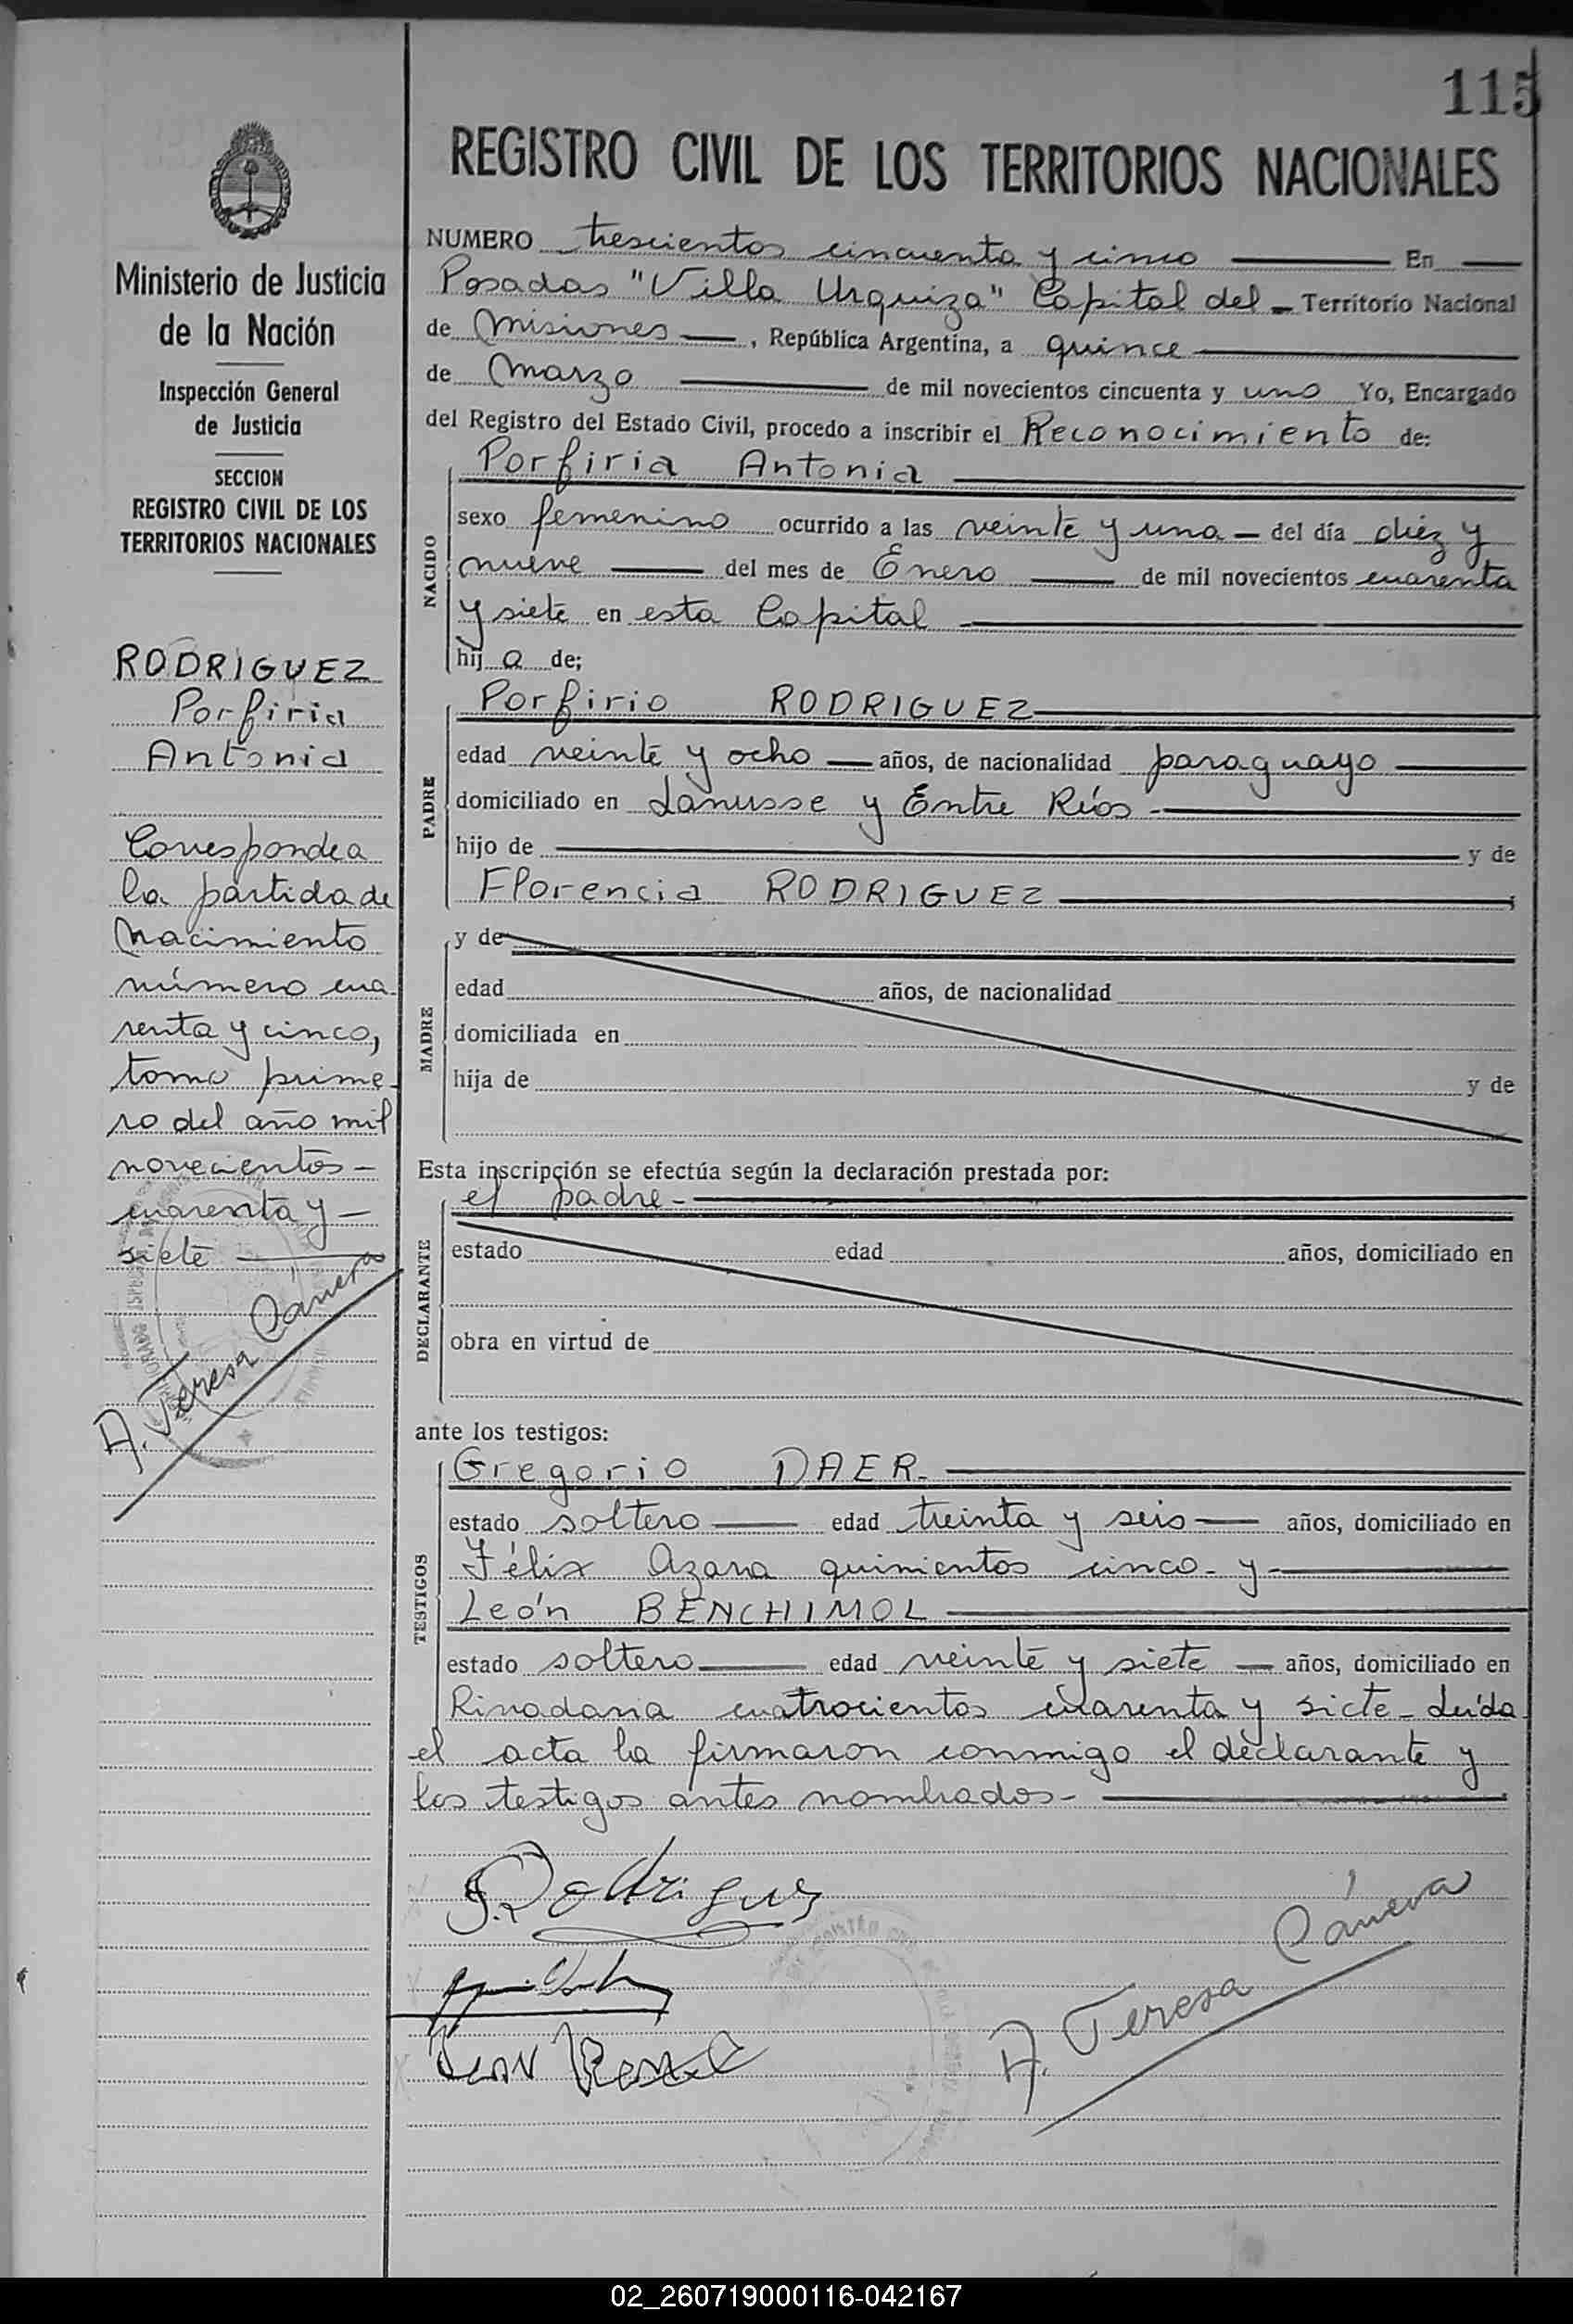 115
REGISTRO CIVIL DE LOS TERRITORIOS NACIONALES
Ministerio de Justicia
de la Nación
Inspección General
de Justicia
SECCION
REGISTRO CIVIL DE LOS
TERRITORIOS NACIONALES
RODRIGUEZ
Porfiria
Antonia
Corresponde a
la partida de
Nacimiento
número cua-
renta y cinco,
tomo prime-
ro del año mil
novecientos -
cuarenta y -
siete
A. Teresa Cánera
NUMERO trescientos cincuenta y cinco En
Posadas "Villa Urquiza" Capital del - Territorio Nacional
de Misiones , República Argentina, a quince
de Marzo de mil novecientos cincuenta y uno Yo, Encargado
del Registro del Estado Civil, procedo a inscribir el Reconocimiento de:
Porfiria Antonia
NACIDO
sexo femenino ocurrido a las veinte y una - del día diéz y
nueve del mes de Enero de mil novecientos cuarenta
y siete en esta Capital
hij a de;
PADRE
Porfirio RODRIGUEZ
edad veinte y ocho años, de nacionalidad paraguayo
domiciliado en Lanusse y Entre Ríos -
hijo de y de
Florencia RODRIGUEZ ;
MADRE
y de
edad años, de nacionalidad
domiciliada en
hija de y de
Esta inscripción se efectúa según la declaración prestada por:
el padre -
DECLARANTE
estado edad años, domiciliado en
obra en virtud de
ante los testigos:
TESTIGOS
Gregorio DAER.
estado soltero edad treinta y seis años, domiciliado en
Félix Azara quinientos cinco - y -
León BENCHIMOL
estado soltero edad veinte y siete años, domiciliado en
Rivadavia cuatrocientos cuarenta y siete - Leída
el acta la firmaron conmigo el declarante y
los testigos antes nombrados -
P. Rodriguez
A. Teresa Cánera
02_260719000116-042167